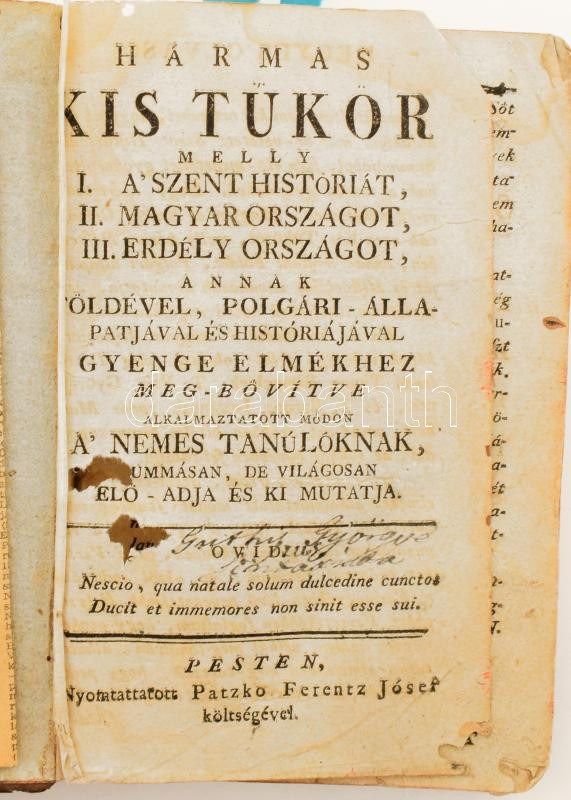 HÁRMAS
KIS TŰKÖR
MELLY
I. A' SZENT HISTÓRIÁT,
II. MAGYAR ORSZÁGOT,
III. ERDÉLY ORSZÁGOT,
ANNAK
FÖLDÉVEL, POLGÁRI-ÁLLA-
PATJÁVAL ÉS HISTÓRIÁJÁVAL
GYENGE ELMÉKHEZ
MEG-BŐVÍTVE
ALKALMAZTATOTT MÓDON
A' NEMES TANÚLÓKNAK,
SUMMÁSAN, DE VILÁGOSAN
ELŐ-ADJA ÉS KI MUTATJA.
OVIDIUS
Nescio, qua natale solum dulcedine cunctos
Ducit et immemores non sinit esse sui.
PESTEN,
Nyomtattatott Patzko Ferentz Jósef
költségével.
darabanth